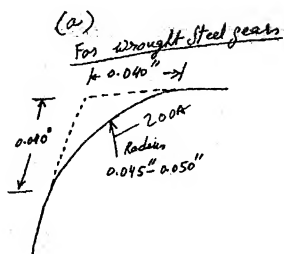 (a)
For Wrought Steel gears
0.040"
0.040"
200A
Radius
0.045"-0.050"